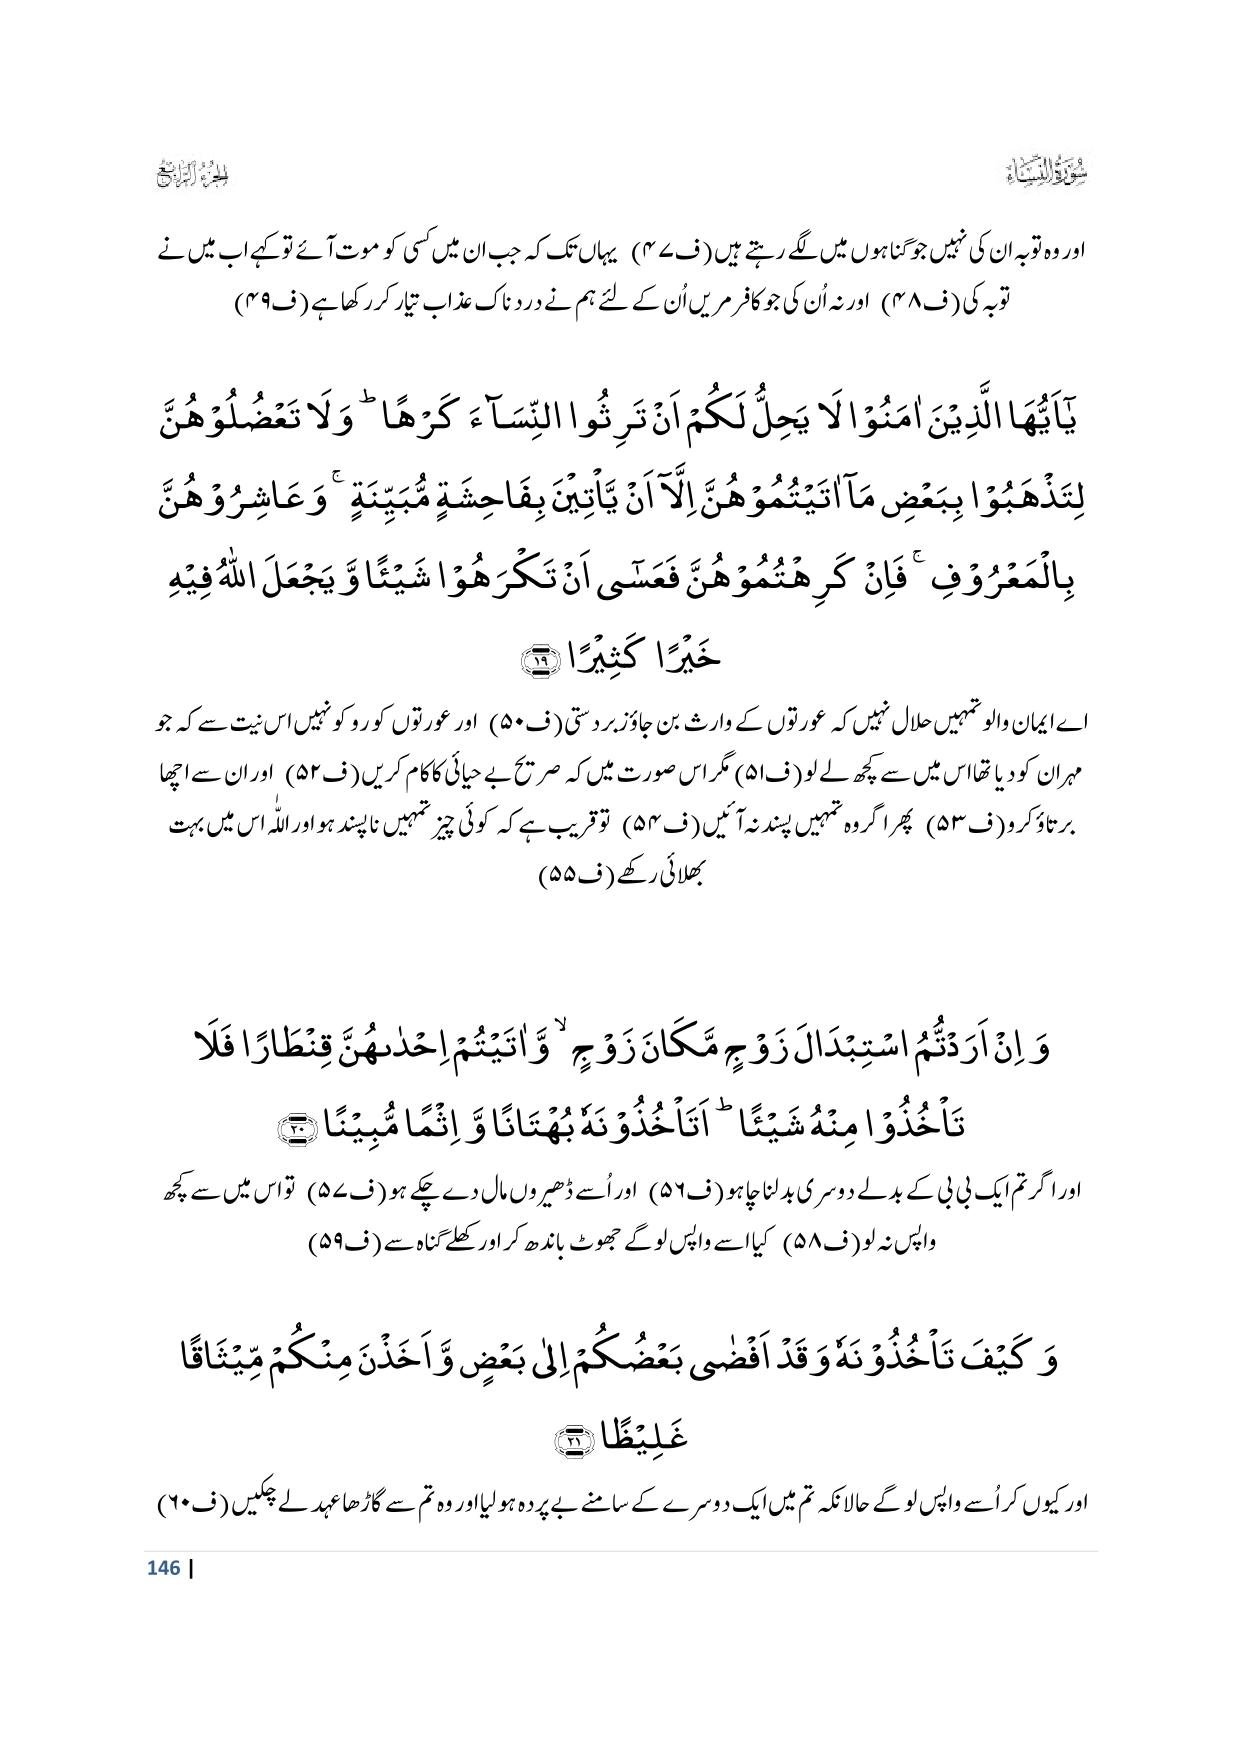 سُوْرَةُ النِّسَآء
الجزء الرابع
اور وہ توبہ ان کی نہیں جو گناہوں میں لگے رہتے ہیں (ف۴۷) یہاں تک کہ جب ان میں کسی کو موت آئے تو کہے اب میں نے
توبہ کی (ف۴۸) اور نہ اُن کی جو کافر مریں اُن کے لئے ہم نے دردناک عذاب تیار کر رکھا ہے (ف۴۹)
یٰۤاَیُّهَا الَّذِیْنَ اٰمَنُوْا لَا یَحِلُّ لَكُمْ اَنْ تَرِثُوا النِّسَآءَ كَرْهًاؕ وَ لَا تَعْضُلُوْهُنَّ
لِتَذْهَبُوْا بِبَعْضِ مَاۤ اٰتَیْتُمُوْهُنَّ اِلَّاۤ اَنْ یَّاْتِیْنَ بِفَاحِشَةٍ مُّبَیِّنَةٍۚ وَ عَاشِرُوْهُنَّ
بِالْمَعْرُوْفِۚ فَاِنْ كَرِهْتُمُوْهُنَّ فَعَسٰۤى اَنْ تَكْرَهُوْا شَیْــٴًـا وَّ یَجْعَلَ اللّٰهُ فِیْهِ
خَیْرًا كَثِیْرًا ﴿۱۹﴾
اے ایمان والو تمہیں حلال نہیں کہ عورتوں کے وارث بن جاؤ زبردستی (ف۵۰) اور عورتوں کو روکو نہیں اس نیت سے کہ جو
مہر ان کو دیا تھا اس میں سے کچھ لے لو (ف۵۱) مگر اس صورت میں کہ صریح بے حیائی کا کام کریں (ف۵۲) اور ان سے اچھا
برتاؤ کرو (ف۵۳) پھر اگر وہ تمہیں پسند نہ آئیں (ف۵۴) تو قریب ہے کہ کوئی چیز تمہیں ناپسند ہو اور اللّٰہ اس میں بہت
بھلائی رکھے (ف۵۵)
وَ اِنْ اَرَدْتُّمُ اسْتِبْدَالَ زَوْجٍ مَّكَانَ زَوْجٍۙ وَّ اٰتَیْتُمْ اِحْدٰىهُنَّ قِنْطَارًا فَلَا
تَاْخُذُوْا مِنْهُ شَیْــٴًـاؕ اَتَاْخُذُوْنَهٗ بُهْتَانًا وَّ اِثْمًا مُّبِیْنًا ﴿۲۰﴾
اور اگر تم ایک بی بی کے بدلے دوسری بدلنا چاہو (ف۵۶) اور اُسے ڈھیروں مال دے چکے ہو (ف۵۷) تو اس میں سے کچھ
واپس نہ لو (ف۵۸) کیا اسے واپس لو گے جھوٹ باندھ کر اور کھلے گناہ سے (ف۵۹)
وَ كَیْفَ تَاْخُذُوْنَهٗ وَ قَدْ اَفْضٰى بَعْضُكُمْ اِلٰى بَعْضٍ وَّ اَخَذْنَ مِنْكُمْ مِّیْثَاقًا
غَلِیْظًا ﴿۲۱﴾
اور کیوں کر اُسے واپس لو گے حالانکہ تم میں ایک دوسرے کے سامنے بے پردہ ہو لیا اور وہ تم سے گاڑھا عہد لے چکیں (ف۶۰)
146 |